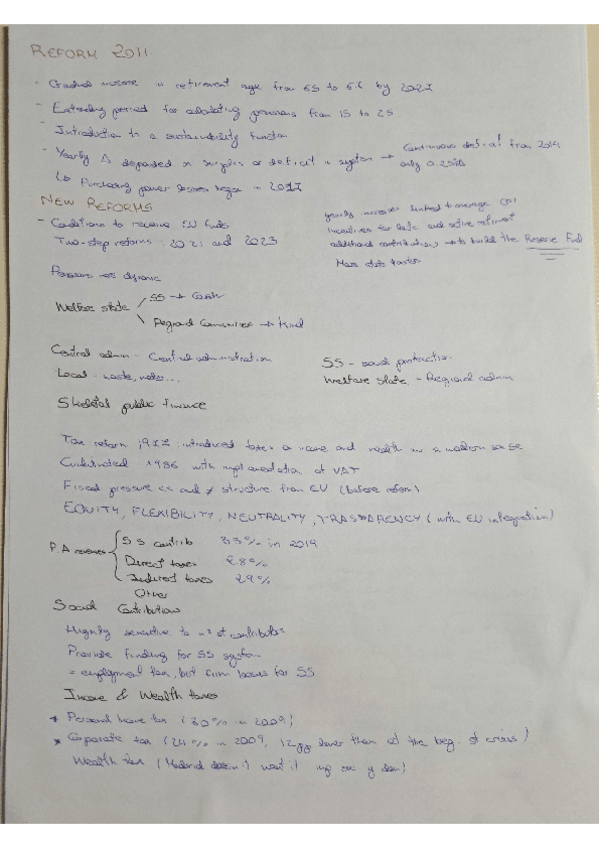 REFORM 2011
- Gradual increase in retirement age from 65 to 66 by 2027
- Extending period for calculating pensions from 15 to 25
- Introduction to a sustainability function
- Yearly Δ depended on surplus or deficit in system → Continuous deficit from 2014
only 0.25%
↳ Purchasing power losses began in 2017
NEW REFORMS
- Conditions to receive EU funds
Two-step reforms: 2021 and 2023
yearly increases linked to average CPI
incentives for late and active retirement
additional contributions → to build the Reserve Fund
Welfare state / SS → Cash
\ Regional Communities → Kind
Central admin - Central administration
Local - waste, water...
SS - social protection
Welfare State - Regional admin
Skeletal public finance
Tax reform 1977: introduced taxes on income and wealth in a modern sense
Culminated 1986 with implementation of VAT
Fiscal pressure and ≠ structure from EU (before reform)
EQUITY, FLEXIBILITY, NEUTRALITY, TRASPARENCY (with EU integration)
P.A revenues { SS contrib 33% in 2019
Direct taxes 28%
Indirect taxes 29%
Other
Social Contributions
Highly sensitive to nº of contributors
Provide funding for SS system
= employment tax, but firm losses for SS
Income & Wealth taxes
* Personal Income tax (30% in 2009)
* Corporate tax (24% in 2009, lower than at the beg. of crisis)
Wealth tax (Madrid doesn't want it)